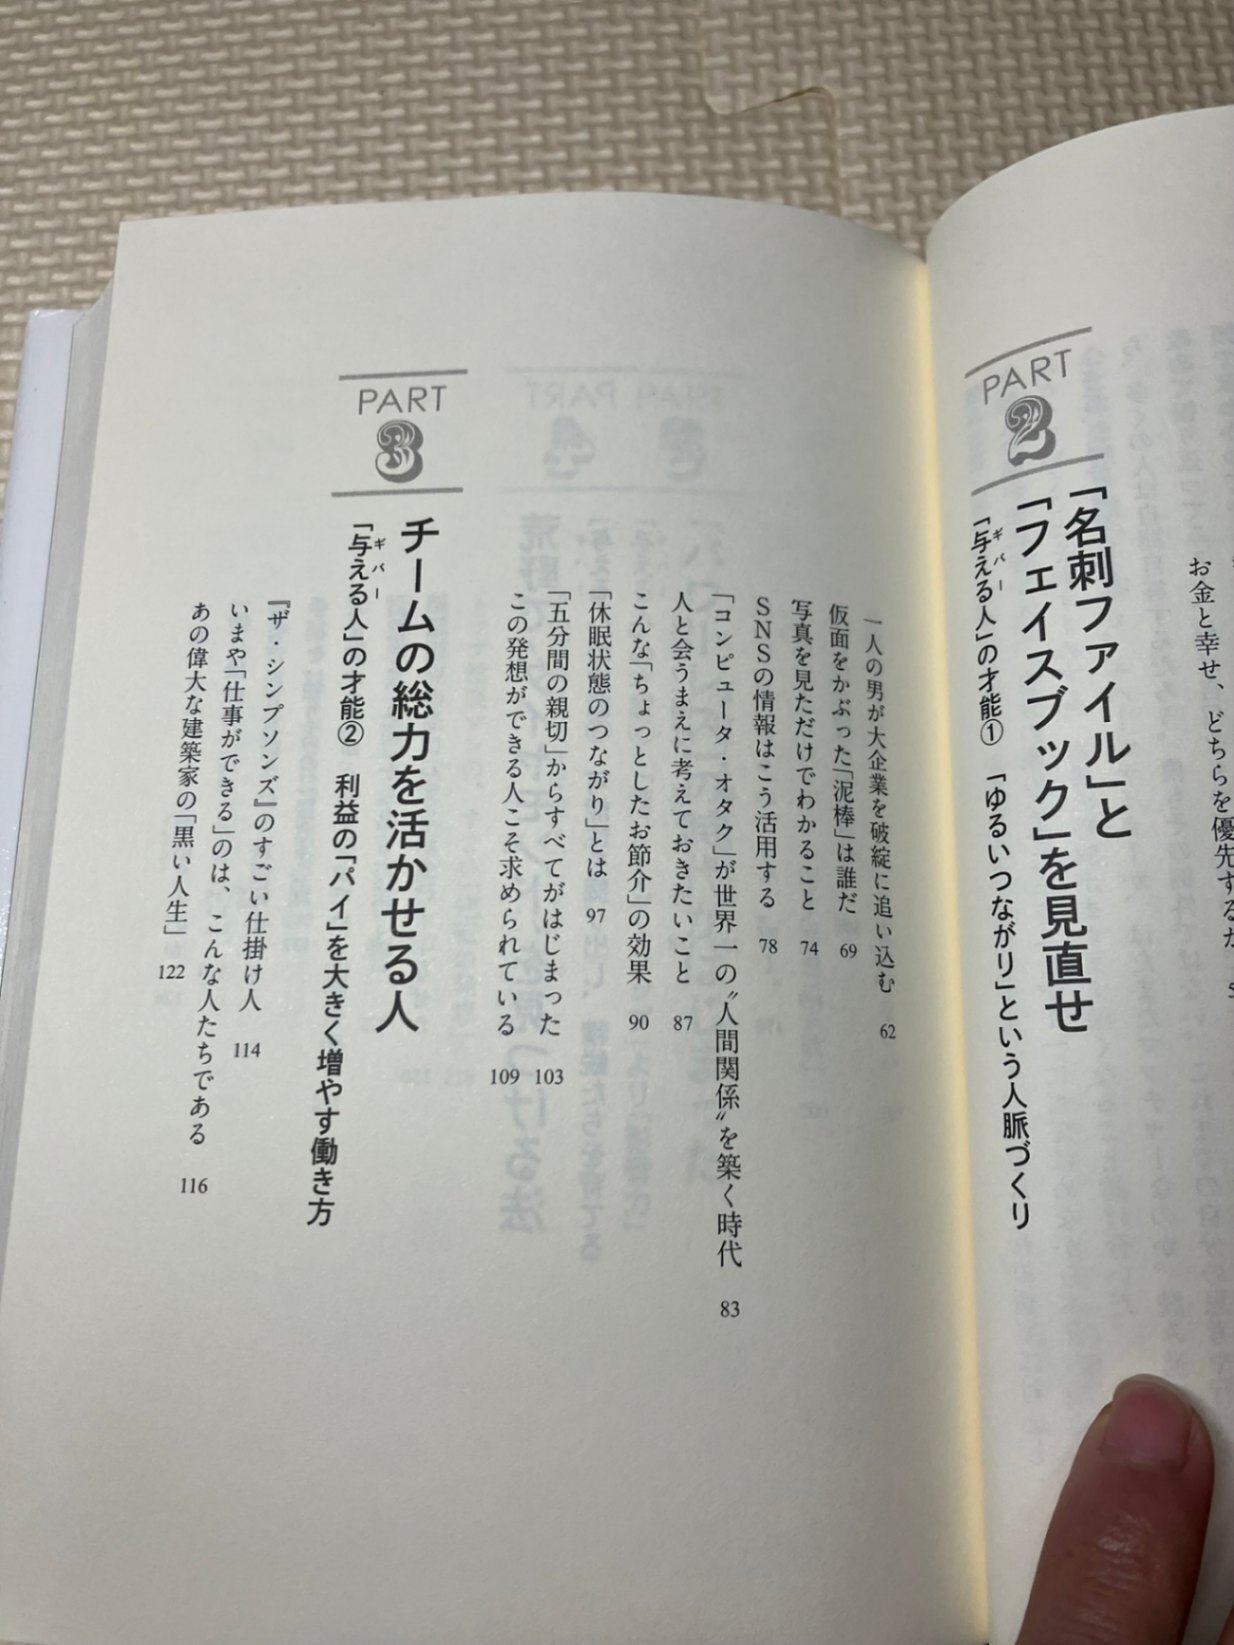 お金と幸せ、どちらを優先するか
PART
2
「名刺ファイル」と
「フェイスブック」を見直せ
「与える人」の才能① 「ゆるいつながり」という人脈づくり
ギバー
一人の男が大企業を破綻に追い込む 62
仮面をかぶった「泥棒」は誰だ 69
写真を見ただけでわかること 74
SNSの情報はこう活用する 78
「コンピュータ・オタク」が世界一の〝人間関係〟を築く時代 83
人と会うまえに考えておきたいこと 87
こんな「ちょっとしたお節介」の効果 90
「休眠状態のつながり」とは 97
「五分間の親切」からすべてがはじまった 103
この発想ができる人こそ求められている 109
PART
3
チームの総力を活かせる人
「与える人」の才能② 利益の「パイ」を大きく増やす働き方
ギバー
『ザ・シンプソンズ』のすごい仕掛け人 114
いまや「仕事ができる」のは、こんな人たちである 116
あの偉大な建築家の「黒い人生」 122